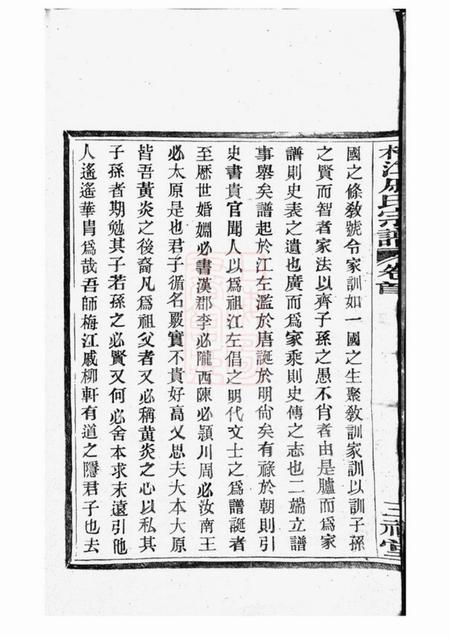 國之條敎號令家訓如一國之生聚敎訓家訓以訓子孫
之賢而智者家法以齊子孫之愚不肖者由是臚而爲家
譜則史表之遺也廣而爲家乘則史傳之志也二端立譜
事舉矣譜起於江左濫於唐誕於明尙矣有祿於朝則引
史書貴官聞人以爲祖江左倡之明代文士之爲譜誕者
至歷世婚姻必書漢郡李必隴西陳必潁川周必汝南王
必太原是也君子循名覈實不貴好高乂思夫大本大原
皆吾黃炎之後裔凡爲祖父者又必稱黃炎之心以私其
子孫者期勉其子若孫之必賢又何必舍本求末遠引他
人遙遙華胄爲哉吾師梅江戚柳軒有道之隱君子也去
江戚氏宗譜
卷首
三禮堂